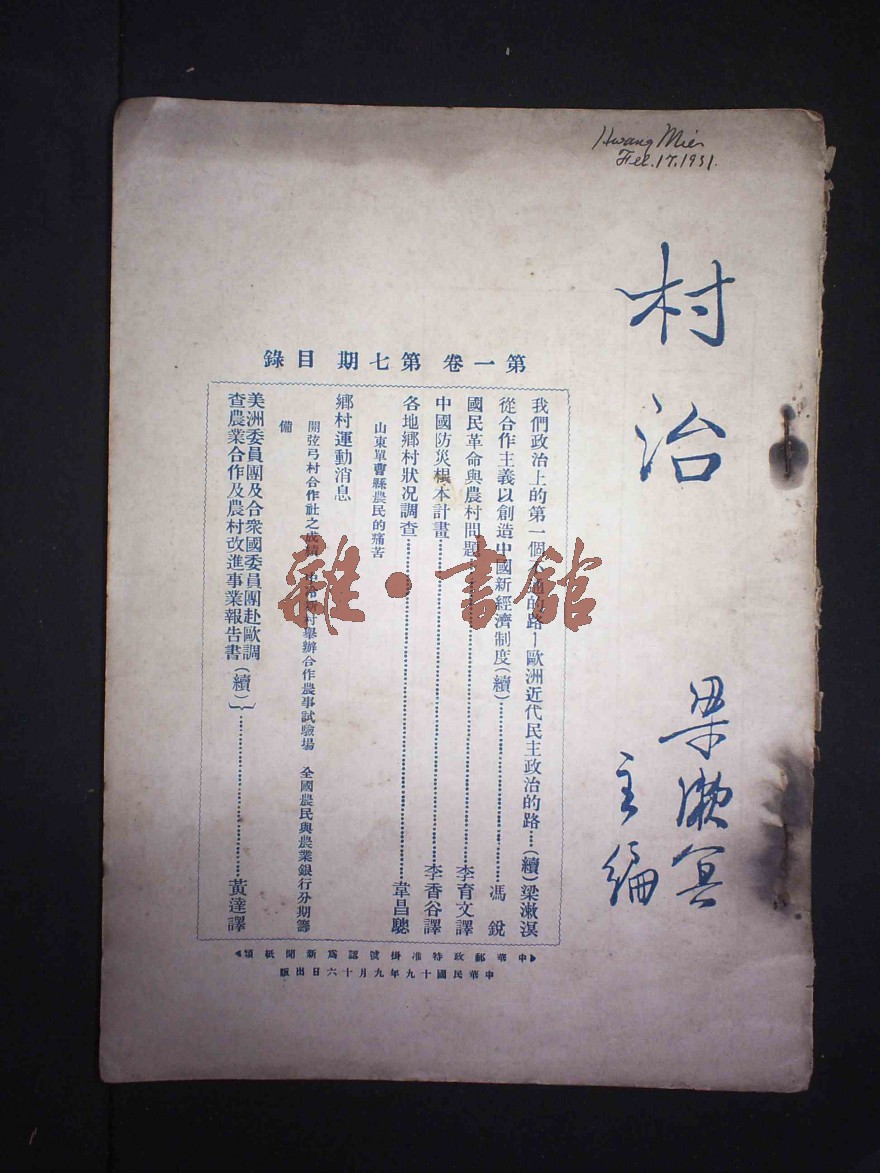 Hwang Mien
Feb. 17, 1931.
村治
梁漱冥
主編
第一卷 第七期 目錄
我們政治上的第一個不通的路—歐洲近代民主政治的路……(續)梁漱溟
從合作主義以創造中國新經濟制度(續)……馮銳
國民革命與農村問題……李育文譯
中國防災根本計畫……李香谷譯
各地鄉村狀况調查……韋昌聰
山東單曹縣農民的痛苦
鄉村運動消息
開弦弓村合作社之成績 新村舉辦合作農事試驗場 全國農民與農業銀行分期籌
備
美洲委員團及合衆國委員團赴歐調
查農業合作及農村改進事業報告書(續)}……黃達譯
中華郵政特准掛號認爲新聞紙類
中華民國十九年九月十六日出版
雜·書館